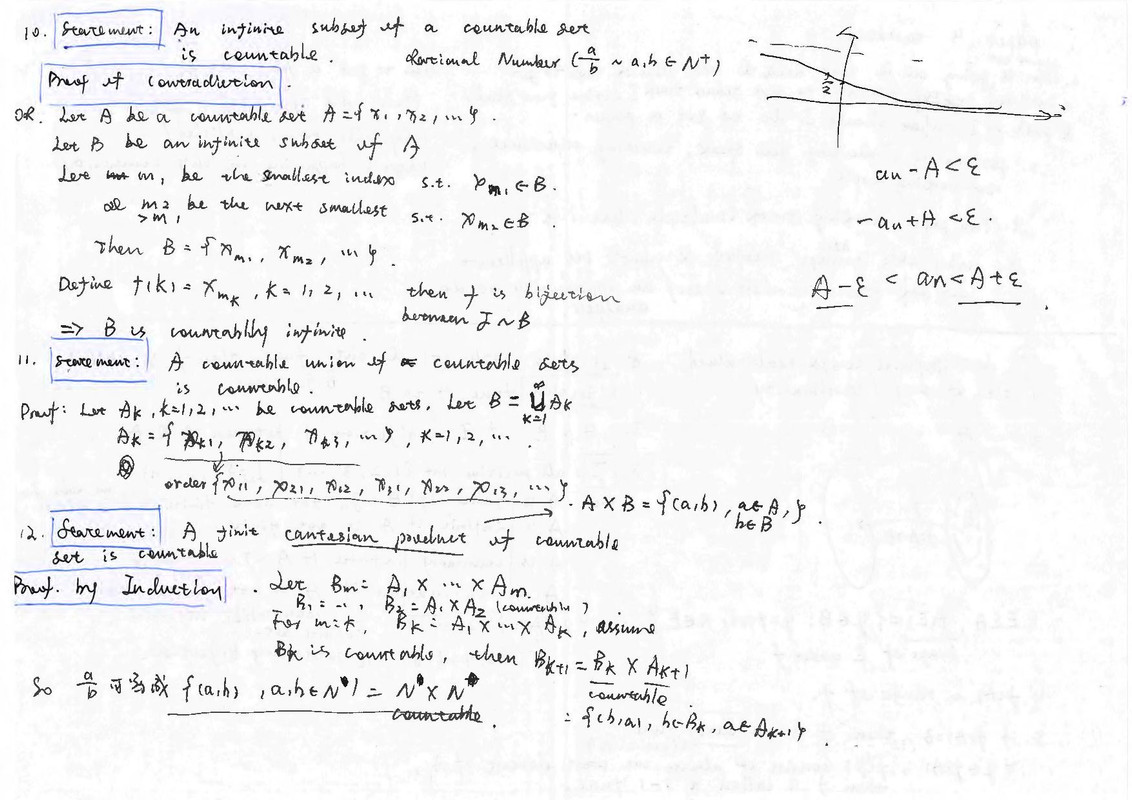 10. Statement: An infinite subset of a countable set
is countable. Rational Number (a/b ~ a,b ∈ N⁺)
Proof of Contradiction.
OR. Let A be a countable set A = {x₁, x₂, ...}.
Let B be an infinite subset of A
Let m₁ be the smallest index s.t. x_m₁ ∈ B.
m₂ be the next smallest s.t. x_m₂ ∈ B.
> m₁
Then B = {x_m₁, x_m₂, ...}.
Define f(k) = x_mₖ, k = 1, 2, ... then f is bijection
between J ~ B
=> B is countably infinite.
11. Statement: A countable union of countable sets
is countable.
Proof: Let Aₖ, k=1,2,... be countable sets. Let B = ∞∪k=1 Aₖ
Aₖ = {xₖ₁, xₖ₂, xₖ₃, ...}, k=1,2,...
order {x₁₁, x₂₁, x₁₂, x₃₁, x₂₂, x₁₃, ...}.
A × B = {(a,b), a∈A, b∈B}.
12. Statement: A finit cantesian product of countable
set is countable
Proof. by Induction. Let Bm = A₁ × ... × Am.
B₁ = ..., B₂ = A₁ × A₂ (countable).
For m=k, Bₖ = A₁ × ... × Aₖ, assume
Bₖ is countable, then Bₖ₊₁ = Bₖ × Aₖ₊₁
countable.
= {(b,a), b∈Bₖ, a∈Aₖ₊₁}.
So a/b 可写成 {(a,b), a,b∈N} = N × N
countable.
1/2
an - A < ε
- an + A < ε.
A - ε < an < A + ε.